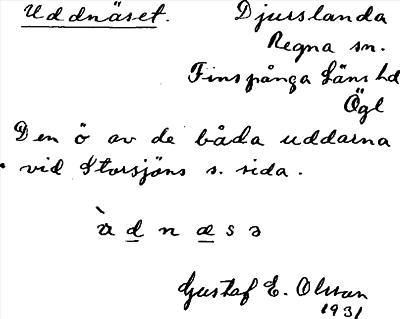 Uddnäset. Djurslanda
Regna sn.
Finspånga Läns hd
Ögl
Den ö av de båda uddarna
vid Storsjöns s. sida.
ὰ d n æ s ə
Gustaf E. Olsson
1931